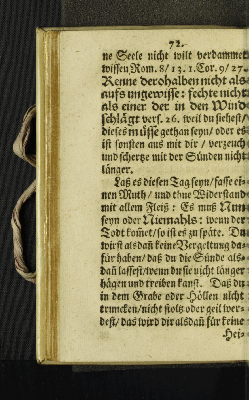 72.
ne Seele nicht wilt verdammet
wissen Rom. 8/ 13. 1. Cor. 9/ 27.
Renne derohalben nicht als
aufs ungewisse: fechte nicht
als einer der in den Wind
schlägt vers. 26. weil du siehest/
dieses müsse gethan seyn/ oder es
ist sonsten aus mit dir / verzeuch
und schertze mit der Sünden nicht
länger.
Laß es diesen Tag seyn/ fasse ei-
nen Muth/ und thue Widerstand
mit allem Fleiß: Es muß Nun
seyn oder Niemahls: wenn der
Todt kom̃et/ so ist es zu späte. Du
wirst alsdañ keine Vergeltung da-
für haben/ daß du die Sünde als-
dañ lassest/ wenn du sie nicht länger
hägen und treiben kanst. Daß du
in dem Grabe oder Höllen nicht
truncken/ nicht stoltz oder geil wer-
dest/ das wird dir alsdañ für keine
Hei-